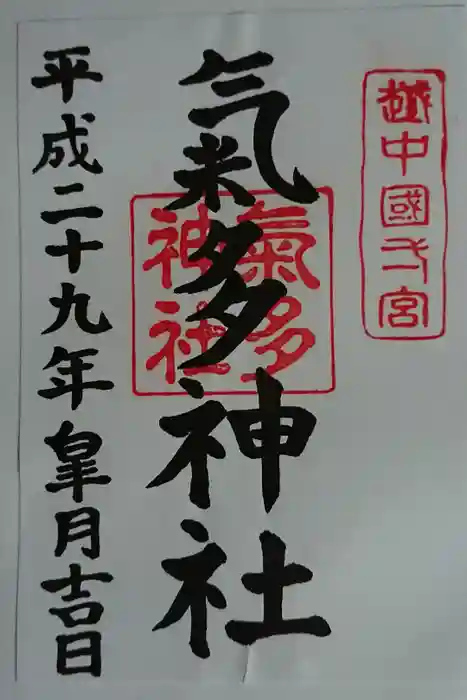 越中國一宮
氣多神社
氣多
神社
平成二十九年皐月吉日